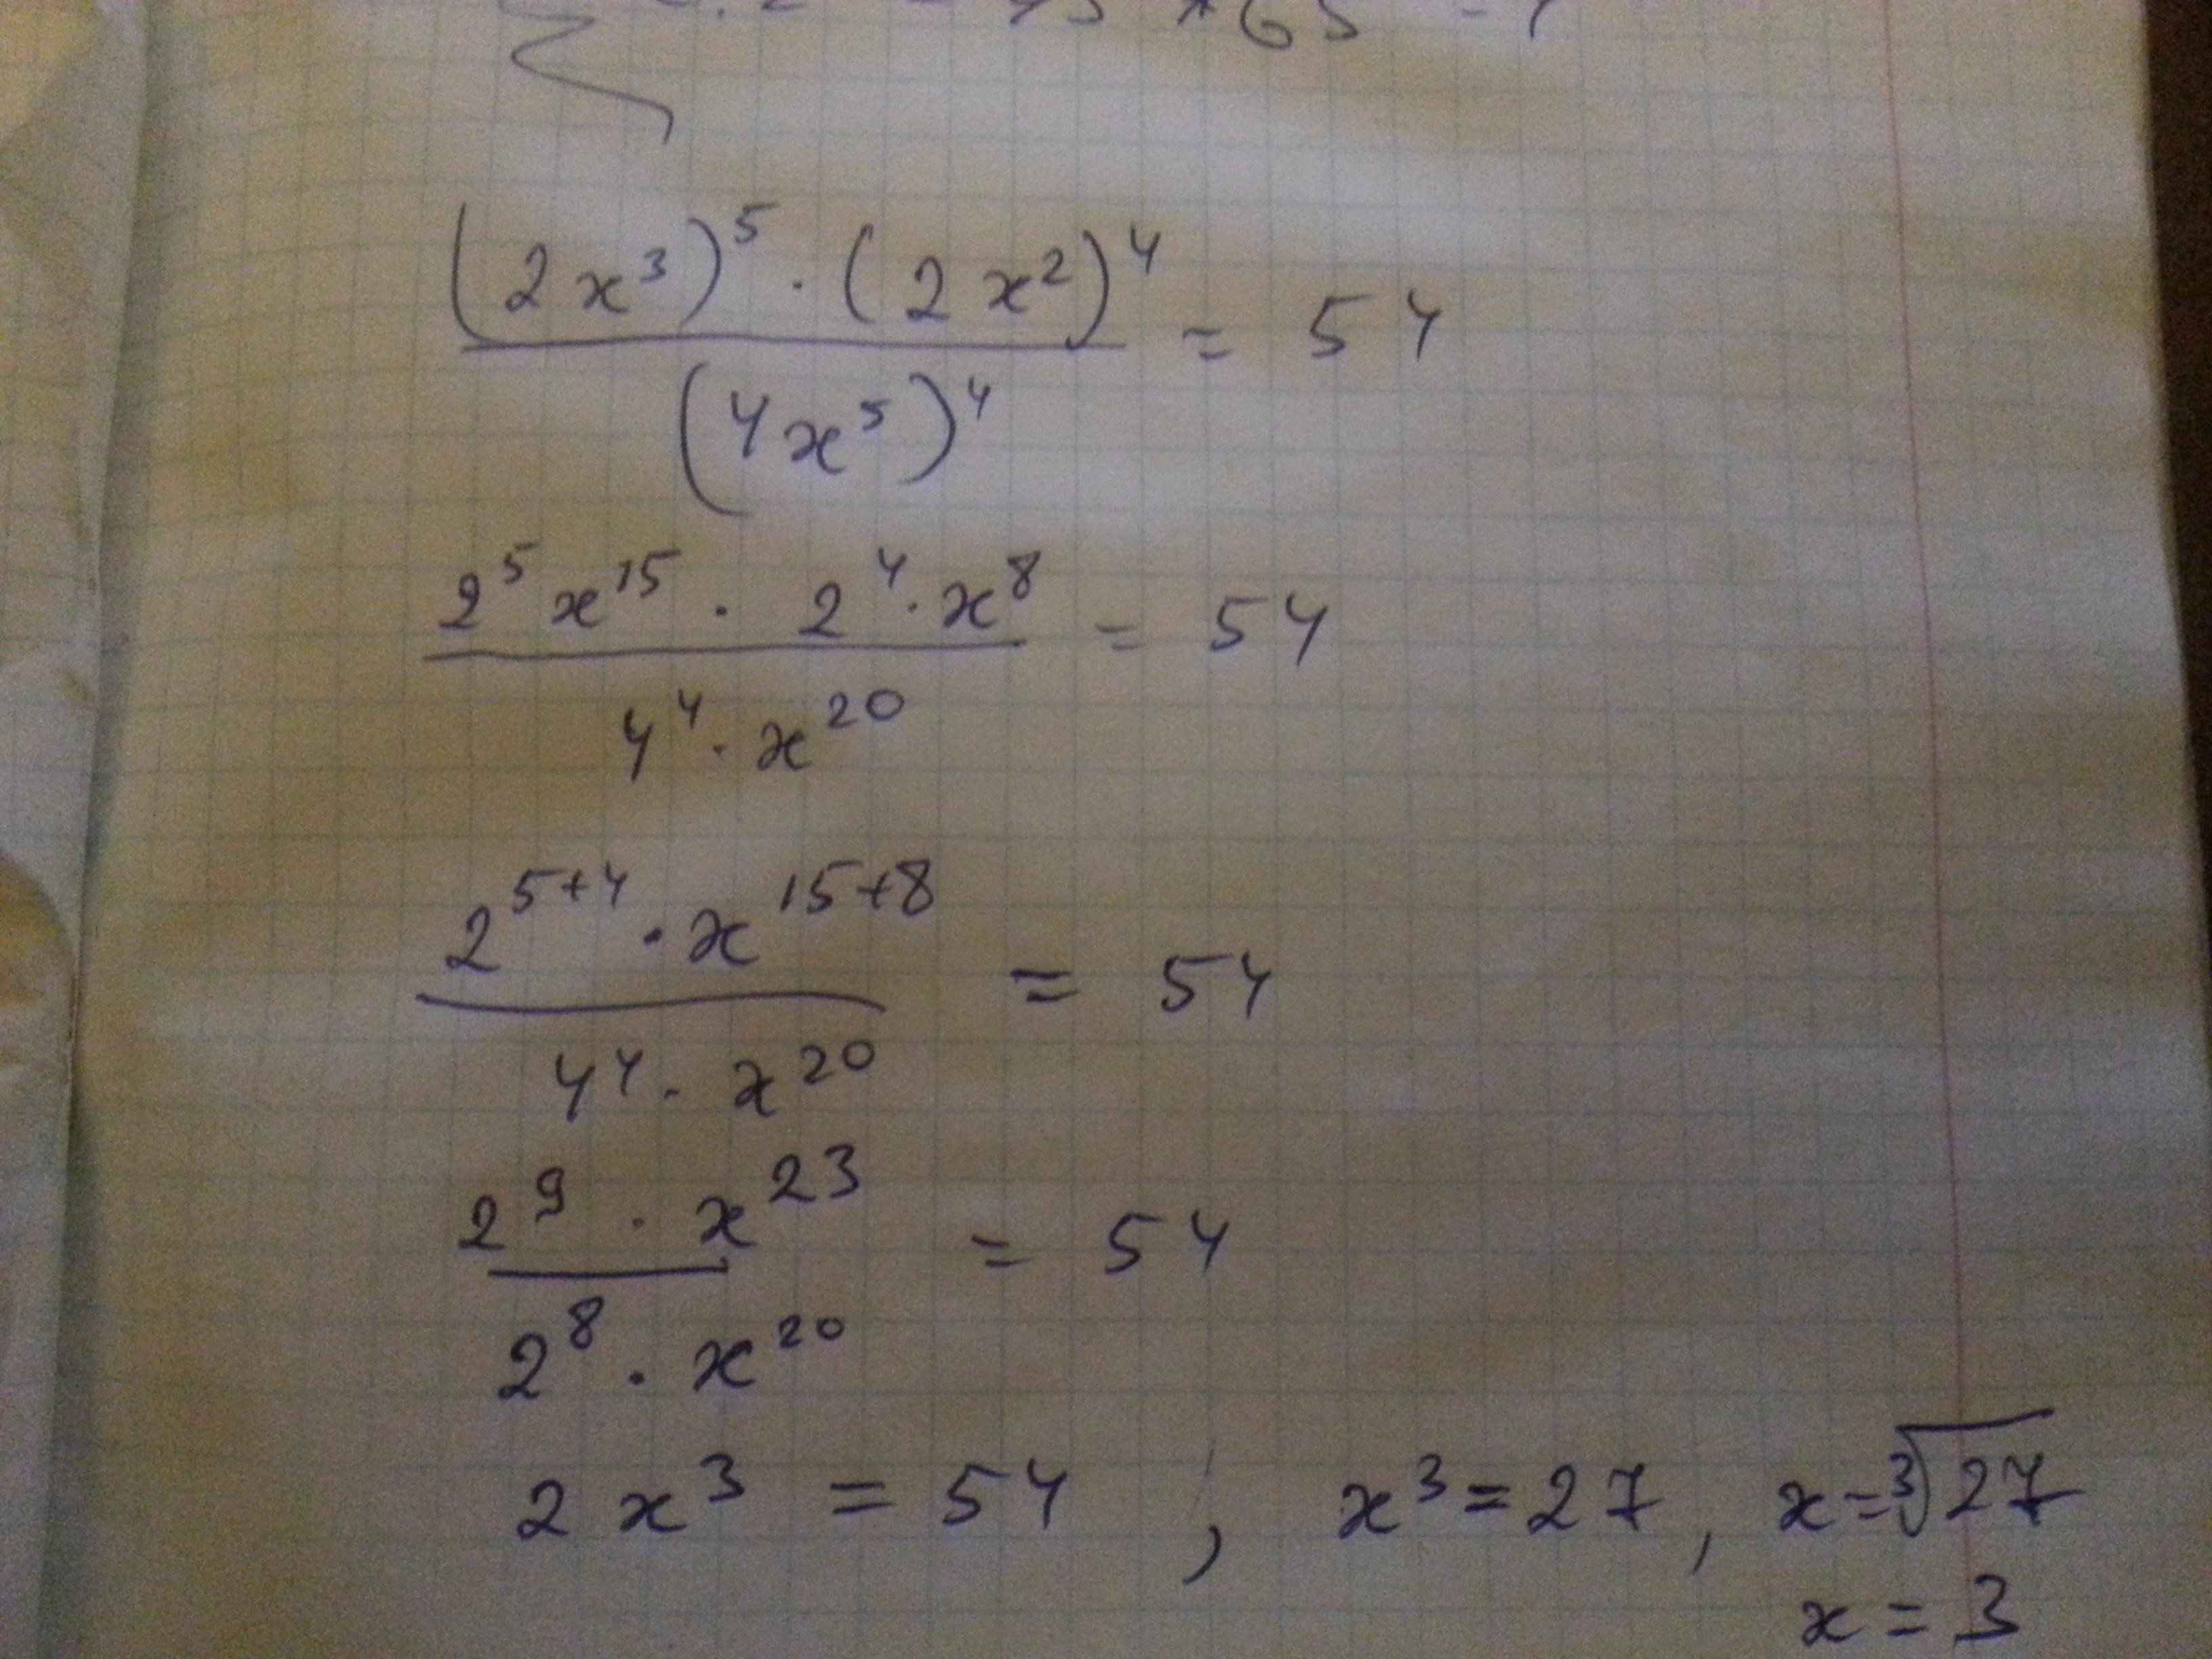 (2x³)⁵ · (2x²)⁴ / (4x⁵)⁴ = 54
2⁵x¹⁵ · 2⁴ · x⁸ / 4⁴ · x²⁰ = 54
2⁵⁺⁴ · x¹⁵⁺⁸ / 4⁴ · x²⁰ = 54
2⁹ · x²³ / 2⁸ · x²⁰ = 54
2x³ = 54 ; x³ = 27, x = ³√27
x = 3